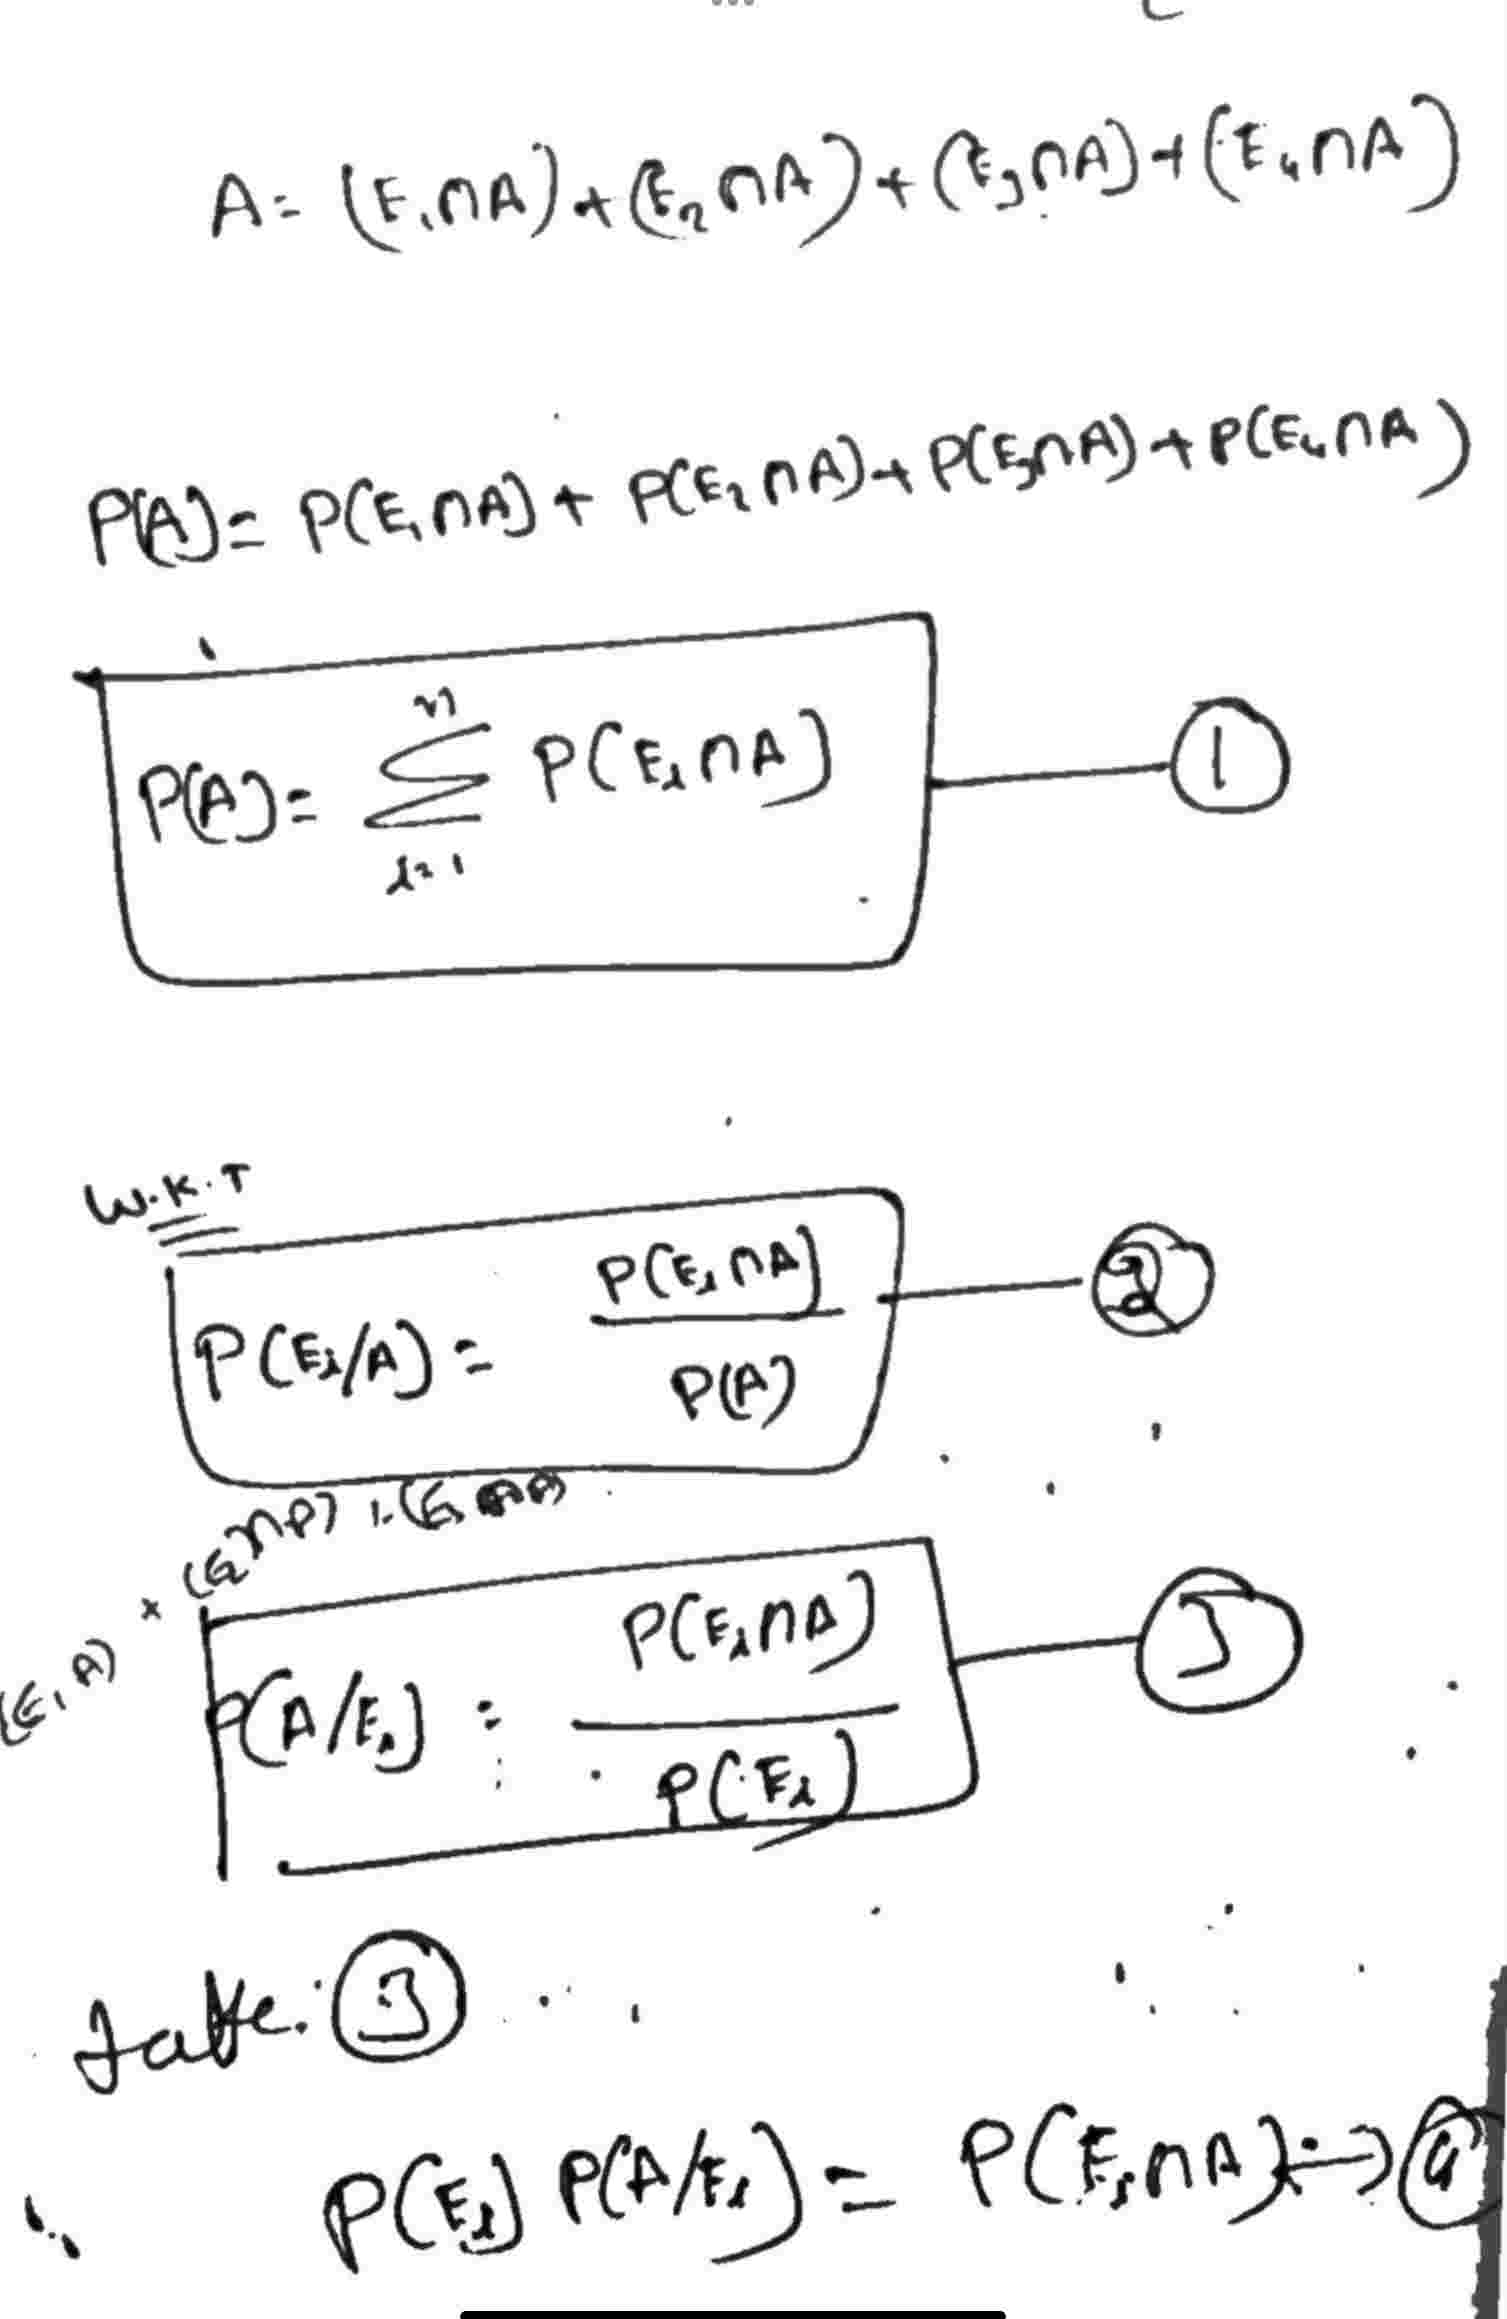 A = (E₁∩A) + (E₂∩A) + (E₃∩A) + (E₄∩A)
P(A) = P(E₁∩A) + P(E₂∩A) + P(E₃∩A) + P(E₄∩A)
P(A) = n Σ i=1 P(Eᵢ∩A) — ①
W.K.T
P(Eᵢ/A) = P(Eᵢ∩A) / P(A) — ②
P(A/Eᵢ) = P(Eᵢ∩A) / P(Eᵢ) — ③
Take: ③
P(Eᵢ) P(A/Eᵢ) = P(Eᵢ∩A) → ④